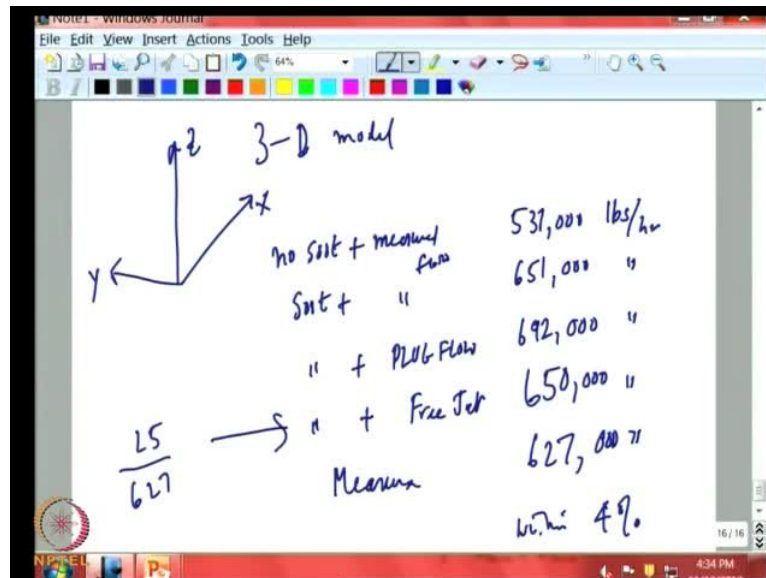 Note1 - Windows Journal
File Edit View Insert Actions Tools Help
64%
B I
z 3-D model
x
y
no soot + measured flow 531,000 lbs/hr
Soot + " 651,000 "
" + PLUG FLOW 692,000 "
25/627 → " + Free Jet 650,000 "
Measure 627,000 "
within 4%
16/16
NPTEL
4:34 PM